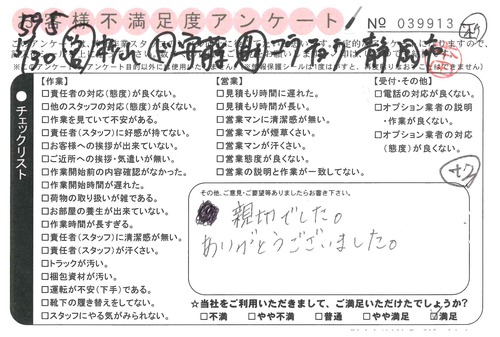 お客様不満足度アンケート
No 039913
595
3/30
チェックリスト
【作業】
□責任者の対応(態度)が良くない。
□他のスタッフの対応(態度)が良くない。
□作業を見ていて不安がある。
□責任者(スタッフ)に好感が持てない。
□お客様への挨拶が出来ていない。
□ご近所への挨拶・気遣いが無い。
□作業開始前の内容確認がなかった。
□作業開始時間が遅れた。
□荷物の取り扱いが雑である。
□お部屋の養生が出来ていない。
□作業時間が長すぎる。
□責任者(スタッフ)に清潔感が無い。
□責任者(スタッフ)が汗くさい。
□トラックが汚い。
□梱包資材が汚い。
□運転が不安(下手)である。
□靴下の履き替えをしてない。
□スタッフにやる気がみられない。
【営業】
□見積もり時間に遅れた。
□見積もり時間が長い。
□営業マンに清潔感が無い。
□営業マンが煙草くさい。
□営業マンが汗くさい。
□営業態度が良くない。
□営業の説明と作業が一致してない。
【受付・その他】
□電話の対応が良くない。
□オプション業者の説明
・作業が良くない。
□オプション業者の対応
(態度)が良くない。
+2
その他、ご意見・ご要望等ありましたらお書き下さい。
親切でした。
ありがとうございました。
☆当社をご利用いただきまして、ご満足いただけたでしょうか?
□不満 □やや不満 □普通 □やや満足 ☑満足